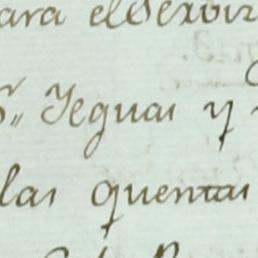 ara el Servir
Yeguas y
las quentas